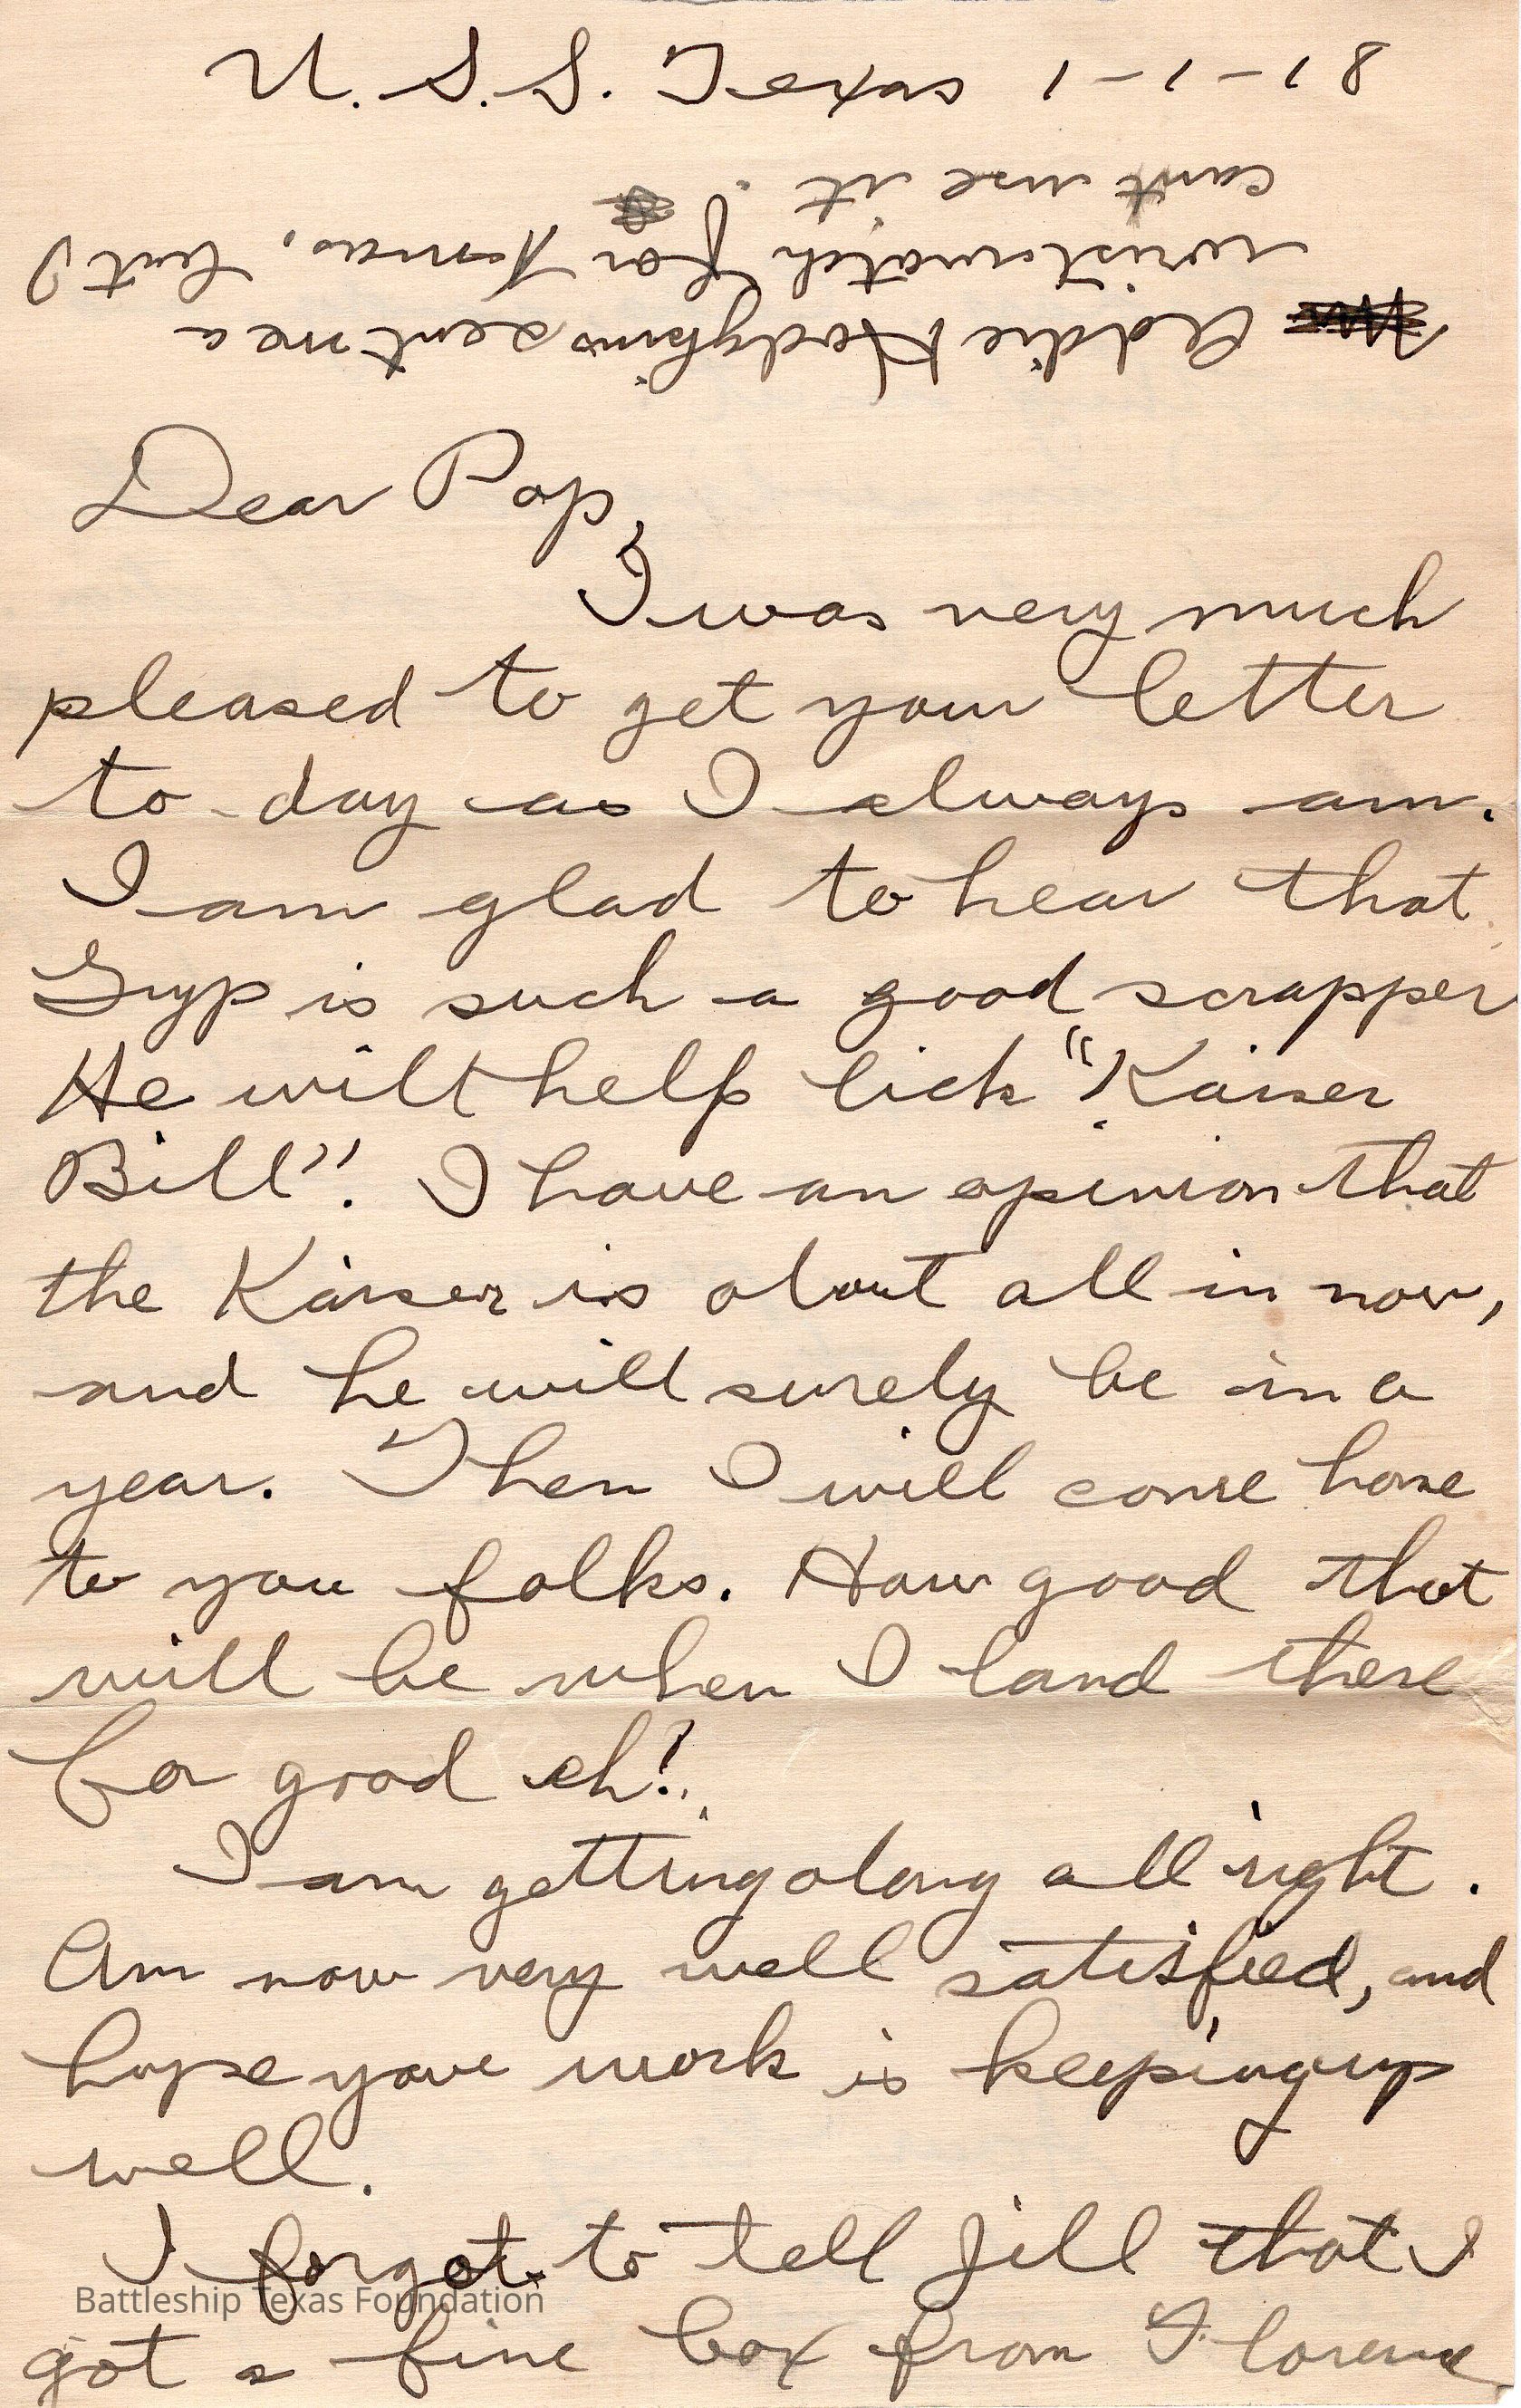 U.S.S. Texas 1-1-18
Addie Hodgkins sent me a
wristwatch for Xmas, but I
cant use it.
Dear Pop,
I was very much
pleased to get your letter
to-day as I always am.
I am glad to hear that
Gyp is such a good scrapper
He will help lick "Kaiser
Bill". I have an opinion that
the Kaiser is about all in now,
and he will surely be in a
year. Then I will come home
to you folks. How good that
will be when I land there
for good eh!
I am getting along all right.
Am now very well satisfied, and
hope your work is keeping up
well.
I forgot to tell Jill that I
got a fine box from Florence
Battleship Texas Foundation